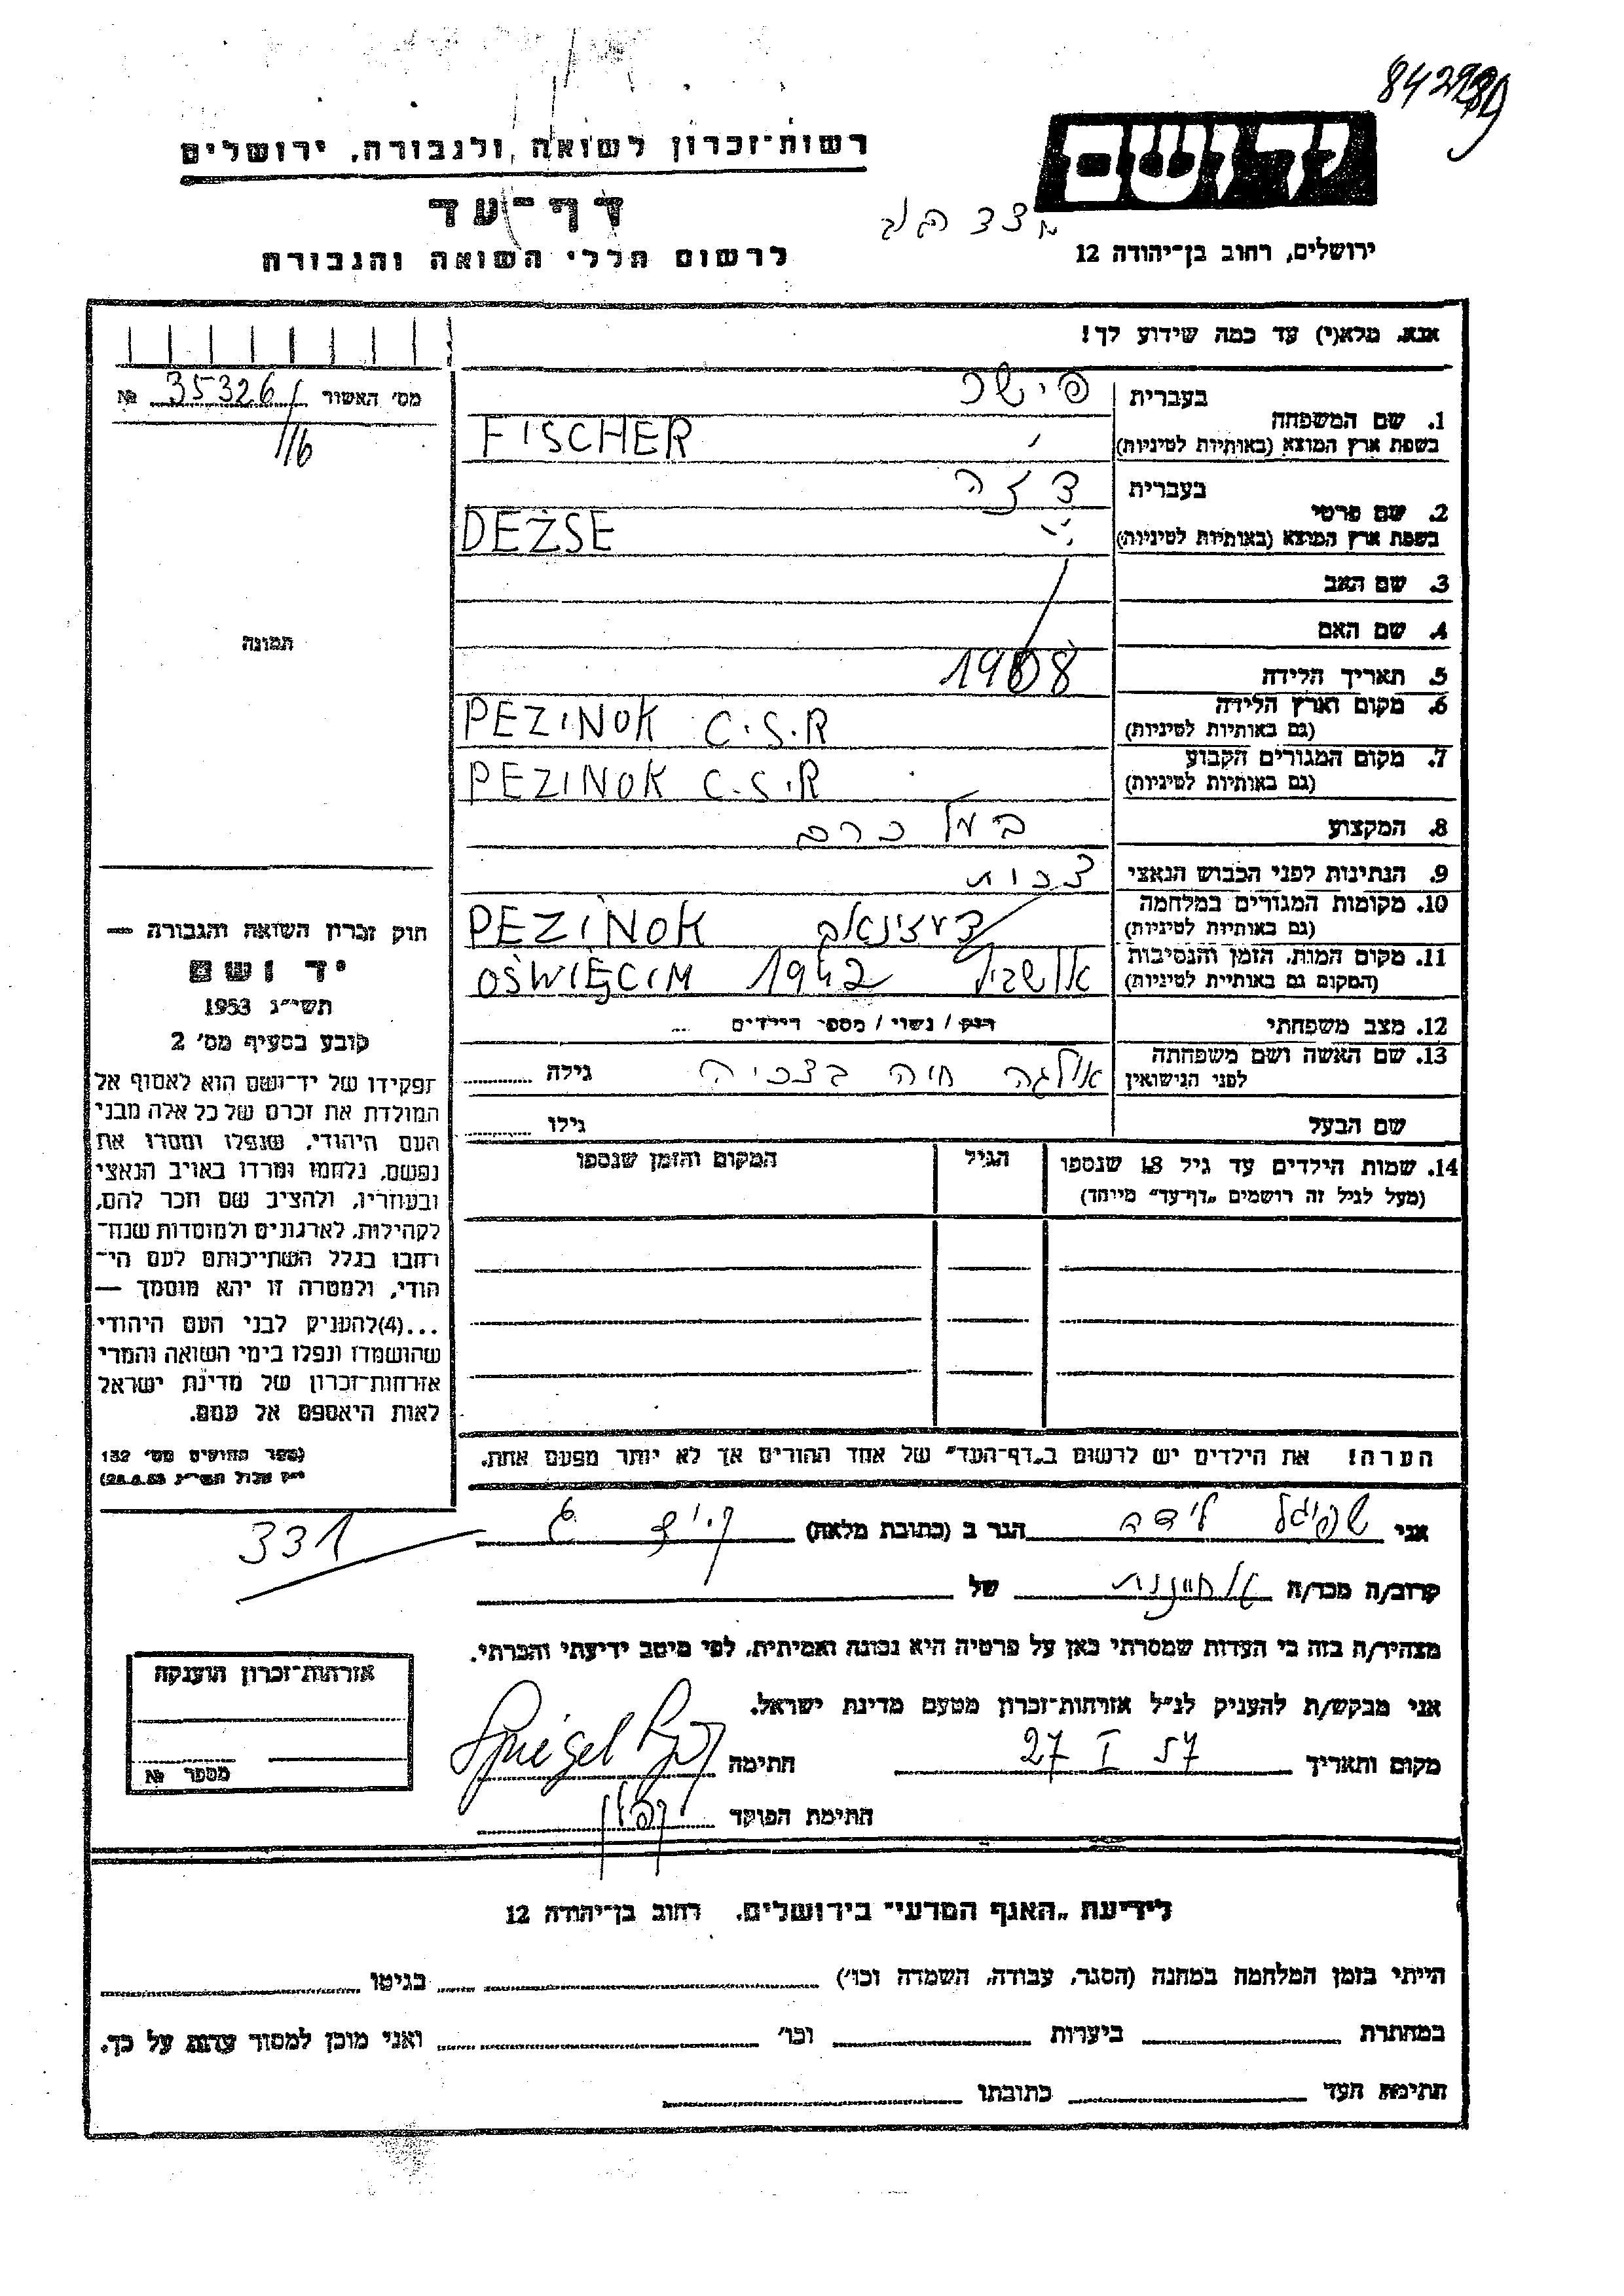 רשות־זכרון לשואה ולגבורה, ירושלים
דף־עד
לרשום חללי השואה והגבורה
יד ושם
ירושלים, רחוב בן־יהודה 12
אנא, מלא(י) עד כמה שידוע לך!
מס' האשור 35326/ №
116
1. שם המשפחה
בעברית פישר
בשפת ארץ המוצא (באותיות לטיניות) FISCHER
2. שם פרטי
בעברית דזה
בשפת ארץ המוצא (באותיות לטיניות) DEŻSE
3. שם האב
4. שם האם
5. תאריך הלידה 1908
6. מקום וארץ הלידה (גם באותיות לטיניות) PEZINOK C.S.R
7. מקום המגורים הקבוע (גם באותיות לטיניות) PEZINOK C.S.R
8. המקצוע בעל כרם
9. הנתינות לפני הכבוש הנאצי צ'כית
10. מקומות המגורים במלחמה (גם באותיות לטיניות) PEZINOK
11. מקום המות, הזמן והנסיבות (המקום גם באותיות לטיניות) OŚWIĘCIM 1942
12. מצב משפחתי רוק / נשוי / מספר הילדים ...
13. שם האשה ושם משפחתה לפני הנישואין אולגה חיה גילה
שם הבעל גילו
14. שמות הילדים עד גיל 18 שנספו (מעל לגיל זה רושמים „דף־עד" מיוחד)
הגיל
המקום והזמן שנספו
הערה! את הילדים יש לרשום ב„דף־העד" של אחד ההורים אך לא יותר מפעם אחת.
תמונה
חוק זכרון השואה והגבורה —
יד ושם
תשי"ג 1953
קובע בסעיף מס' 2
תפקידו של יד־ושם הוא לאסוף אל
המולדת את זכרם של כל אלה מבני
העם היהודי, שנפלו ומסרו את
נפשם, נלחמו ומרדו באויב הנאצי
ובעוזריו, ולהציב שם וזכר להם,
לקהילות, לארגונים ולמוסדות שנח־
רבו בגלל השתייכותם לעם הי־
הודי, ולמטרה זו יהא מוסמך —
...(4)להעניק לבני העם היהודי
שהושמדו ונפלו בימי השואה והמרי
אזרחות־זכרון של מדינת ישראל
לאות היאספם אל עמם.
(ספר החוקים מס' 132
י"ז אלול תשי"ג 28.8.53)
331
אני שפיגל לידה הגר ב (כתובת מלאה)
קרוב/ה מכר/ה של
מצהיר/ה בזה כי העדות שמסרתי כאן על פרטיה היא נכונה ואמיתית, לפי מיטב ידיעתי והכרתי.
אני מבקש/ת להעניק לנ"ל אזרחות־זכרון מטעם מדינת ישראל.
מקום ותאריך 27 I 57 חתימה Spiegel
חתימת הפוקד
אזרחות־זכרון הוענקה
מספר №
לידיעת „האגף המדעי" בירושלים, רחוב בן־יהודה 12
הייתי בזמן המלחמה במחנה (הסגר, עבודה, השמדה וכו') בגיטו
במחתרת ביערות וכו' ואני מוכן למסור עדות על כך.
חתימת העד כתובתו